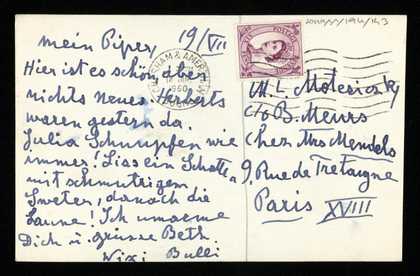 19/VII
mein Piper,
Hier ist es schön, aber
nichts Neues. Herberts
waren gestern da.
Julia Schnupfen wie
immer! Lias ein Schatten
mit schmutzigem
Sweter, danach die
Laune! Ich umarme
Dich u. grüsse Beth.
Wixi Bulli
CHESHAM & AMERSHAM
1960
POSTAGE
M. L. Motesiczky
c/o B. Meurs
chez Mrs Mendels
9, Rue de Tretaigne
Paris XVIII